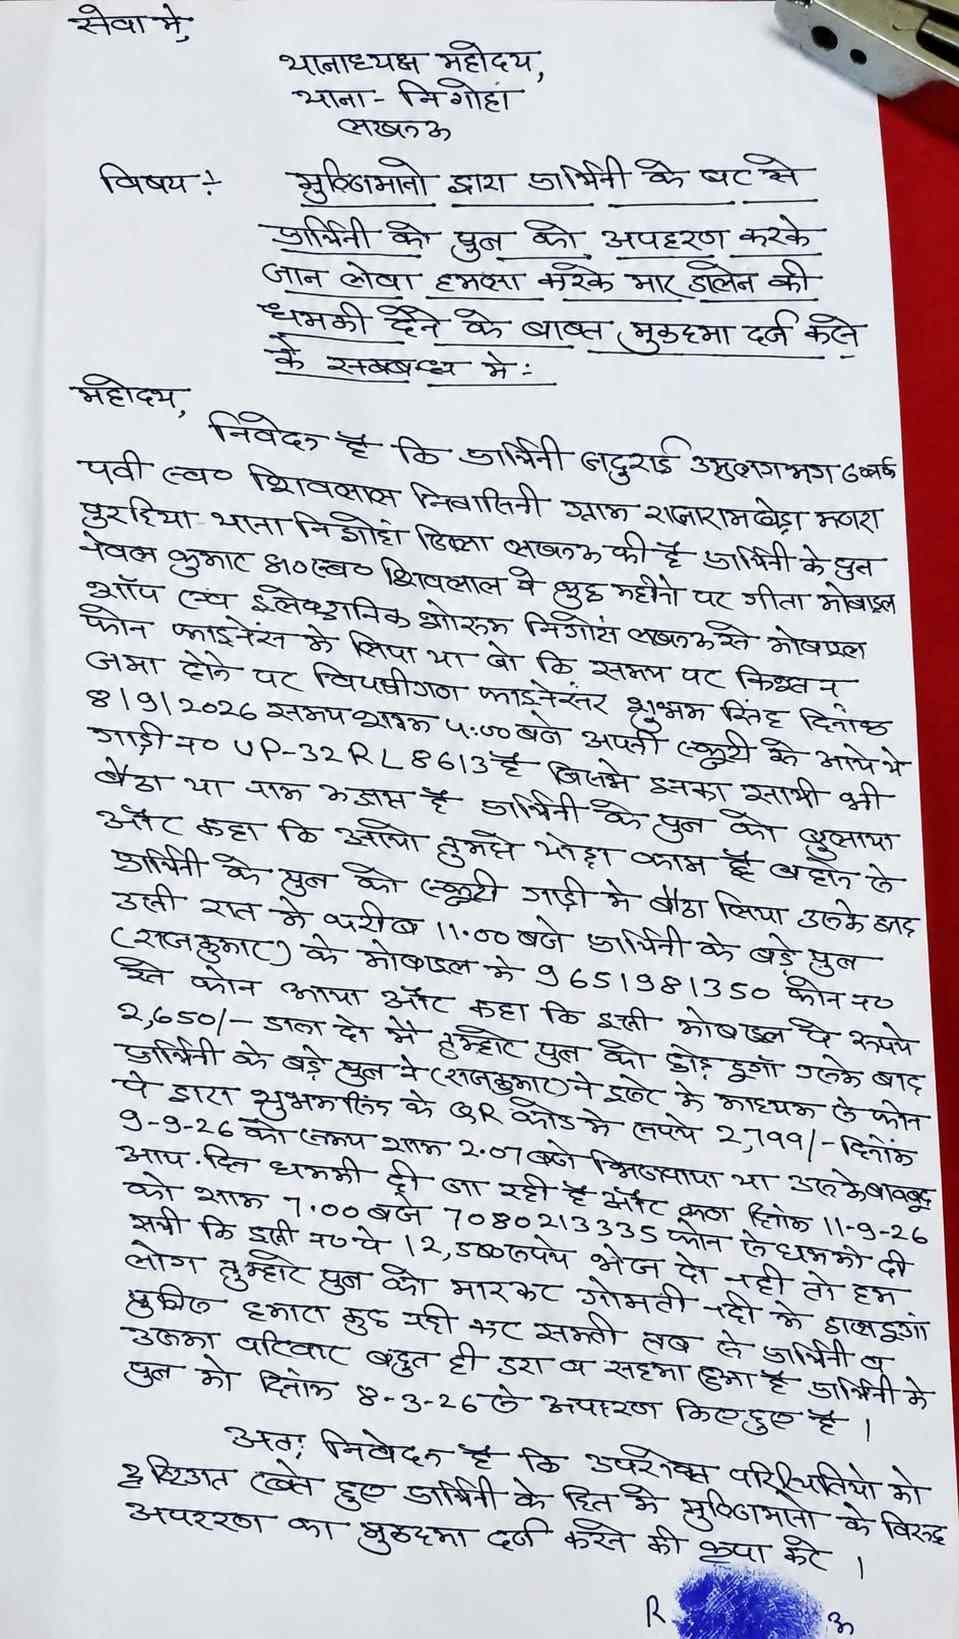 सेवा में,
थानाध्यक्ष महोदय,
थाना - निगोहां
लखनऊ
विषय :- मुल्जिमानो द्वारा प्रार्थिनी के घर से
प्रार्थिनी को पुत्र को अपहरण करके
जान लेवा हमला करके मार डालने की
धमकी देने के बाबत मुकदमा दर्ज करने
के सम्बन्ध में :-
महोदय,
निवेदन है कि प्रार्थिनी उम्र लगभग
पत्नी स्व० शिवलाल निवासिनी ग्राम राजारामखेड़ा मजरा
पुरहिया थाना निगोहां जिला लखनऊ की है प्रार्थिनी के पुत्र
कुमार S/० स्व० शिवलाल ने कुछ महीनो पर गीता मोबाइल
शॉप एवं इलेक्ट्रानिक शोरूम निगोहां लखनऊ से मोबाइल
फोन फाइनेंस में लिया था जो कि समय पर किश्त न
जमा होने पर विपक्षीगण फाइनेंसर शुभम सिंह दिनांक
8/9/2026 समय शाम 5:00 बजे अपनी स्कूटी से आये थे
गाड़ी न० UP-32 RL 8613 है जिसमे इनका साथी भी
बैठा था नाम है प्रार्थिनी के पुत्र को बुलाया
और कहा कि आओ तुमसे थोड़ा काम है बहाने से
प्रार्थिनी के पुत्र को स्कूटी गाड़ी में बैठा लिया उसके बाद
उसी रात में करीब 11.00 बजे प्रार्थिनी के बड़े पुत्र
(राजकुमार) के मोबाइल में 9651981350 फोन न०
से फोन आया और कहा कि इसी मोबाइल पे रूपये
2,650/- डाल दो मैं तुम्हारे पुत्र को छोड़ दूगॉ उसके बाद
प्रार्थिनी के बड़े पुत्र ने (राजकुमार) ने के माध्यम से फोन
पे द्वारा शुभम सिंह के QR कोड में रूपये 2,799/- दिनांक
9-9-26 को समय शाम 2.07 बजे भिजवाया था उसके बावजूद
आय दिन धमकी दी जा रही है और कहा दिनांक 11-9-26
को शाम 7.00 बजे 7080213335 फोन से धमकी दी
कि इसी न० पे 12,500 रूपये भेज दो नही तो हम
लोग तुम्हारे पुत्र को मारकर गोमती नदी में डाल दूगां
पुलिस हमारा कुछ नही कर सकती तब से प्रार्थिनी व
उसका परिवार बहुत ही डरा व सहमा हुआ है प्रार्थिनी के
पुत्र को दिनांक 8-9-26 से अपहरण किए हुए है ।
अतः निवेदन है कि उपरोक्त परिस्थितियो को
दृष्टिगत रखते हुए प्रार्थिनी के हित में मुल्जिमानो के विरूद्ध
अपहरण का मुकदमा दर्ज करने की कृपा करे ।